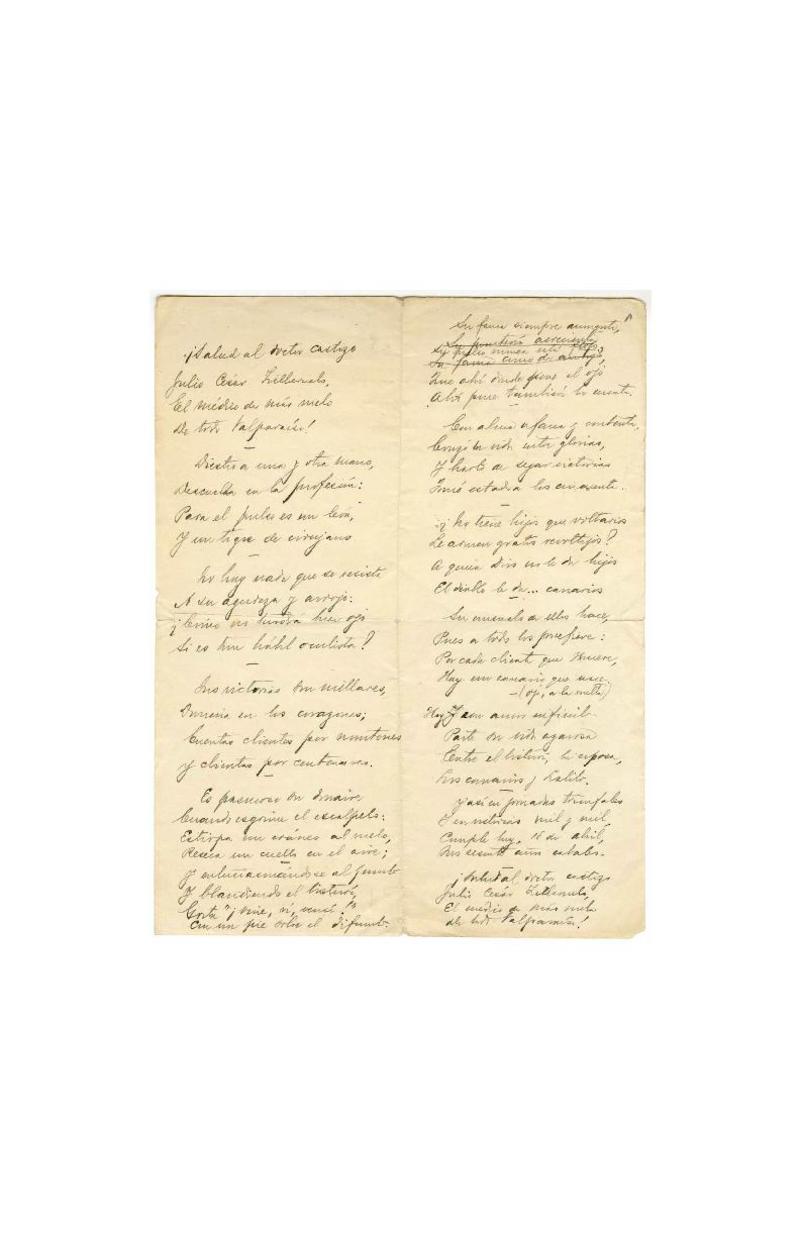 ¡Salud al doctor castizo
Julio César
El médico de más melo
De todo Valparaíso!
Diestro a una y otra mano,
Descuella en la profesión:
Para el pulso es un león,
Y un tigre de cirujano
No hay nada que se resista
A su agudeza y arrojo:
¡Cómo no tendrá buen ojo
Si es tan hábil oculista?
Sus victorias son millares,
Domina en los corazones;
Cuentas clientes por montones
y clientas por centenares.
Es pasmoso su donaire
Cuando esgrime el escalpelo:
Estirpa un cráneo al vuelo,
Reseca un cuello en el aire;
Y entusiasmándose al punto
Y blandiendo el bisturí,
Grita "¡vine, ví, vencí!"
Con un pie sobre el difunto.
Su fama siempre aumenta,
Su
Su pulso nunca está
Su fama
Que ahí donde pone el ojo
Ahí pone también la cuenta.
Con alma ufana y contenta,
Cruzó la vida entre glorias,
Y harto de segar victorias
Tomó estado a los cincuenta.
¿No tiene hijos que voltarios
Le armen gratis revoltijos?
A quien Dios no le da hijos
El diablo le da... canarios
Su consuelo en ellos hace,
Pues a todo los prefiere:
Por cada cliente que muere,
Hay un canario que nace.
—(ojo, a la vuelta)
Hoy Y con amor
Parte su vida
Entre el bisturí, la esposa,
Los canarios y
Y así en jornadas triunfales
Y en victorias mil y mil,
Cumple hoy, 16 de abril,
Sus sesenta años cabales.
¡Salud al doctor castizo
Julio César
El médico de más melo
de todo Valparaíso!